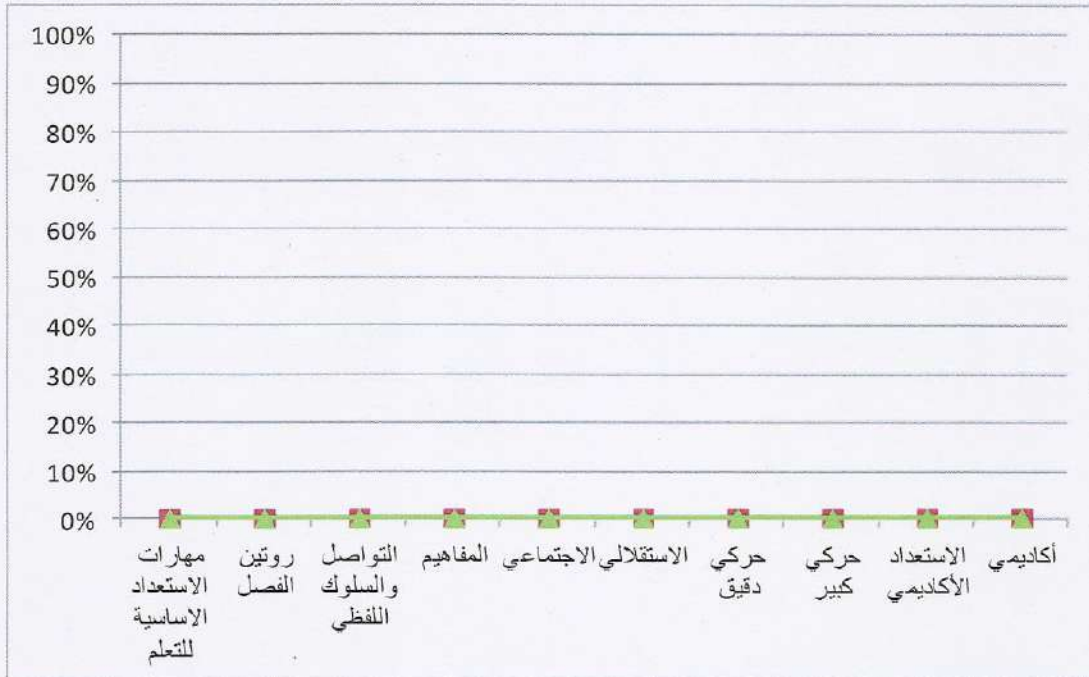 100%
90%
80%
70%
60%
50%
40%
30%
20%
10%
0%
مهارات
الاستعداد
الاساسية
للتعلم
روتين
الفصل
التواصل
والسلوك
اللفظي
المفاهيم
الاجتماعي
الاستقلالي
حركي
دقيق
حركي
كبير
الاستعداد
الأكاديمي
أكاديمي